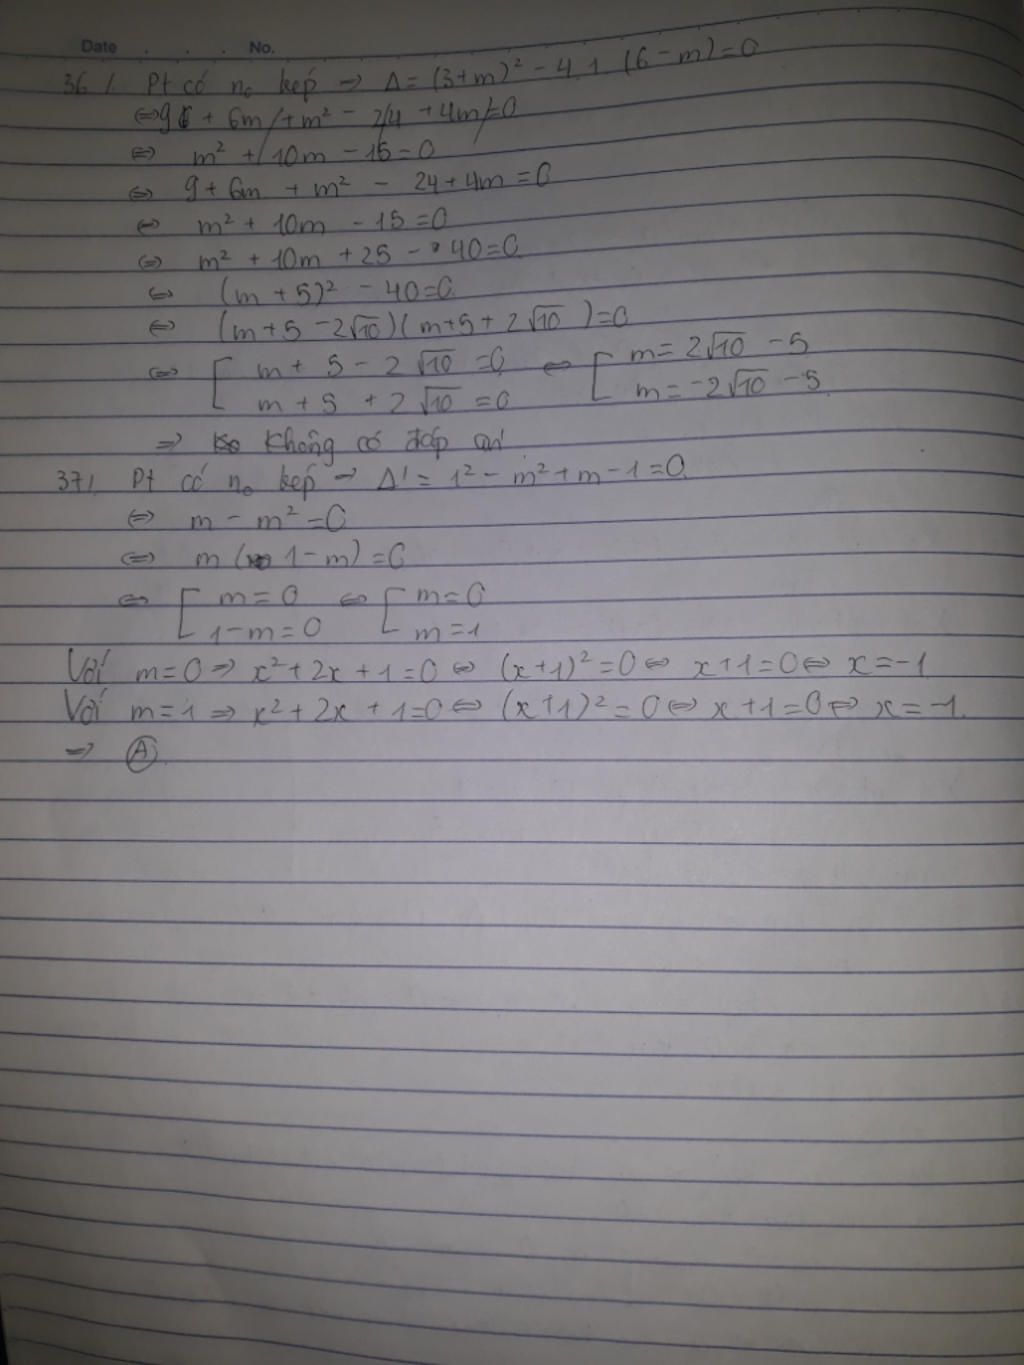 Date . . . No.
36 /. Pt có n₀ kép → Δ = (3+m)² - 4.1 (6-m)=0
⇔ 9 + 6m + m² - 24 + 4m = 0
⇔ m² + 10m - 15 = 0
⇔ 9 + 6m + m² - 24 + 4m = 0
⇔ m² + 10m - 15 = 0
⇔ m² + 10m + 25 - 40 = 0
⇔ (m + 5)² - 40 = 0
⇔ (m + 5 - 2√10)(m + 5 + 2√10) = 0
⇔ [ m + 5 - 2√10 = 0 ⇔ [ m = 2√10 - 5
m + 5 + 2√10 = 0 m = -2√10 - 5
⇒ Không có đáp án
37/. Pt có n₀ kép → Δ' = 1² - m² + m - 1 = 0
⇔ m - m² = 0
⇔ m (1 - m) = 0
⇔ [ m = 0 ⇔ [ m = 0
1 - m = 0 m = 1
Với m = 0 ⇒ x² + 2x + 1 = 0 ⇔ (x+1)² = 0 ⇔ x + 1 = 0 ⇔ x = -1
Với m = 1 ⇒ x² + 2x + 1 = 0 ⇔ (x+1)² = 0 ⇔ x + 1 = 0 ⇔ x = -1.
⇒ Ⓐ